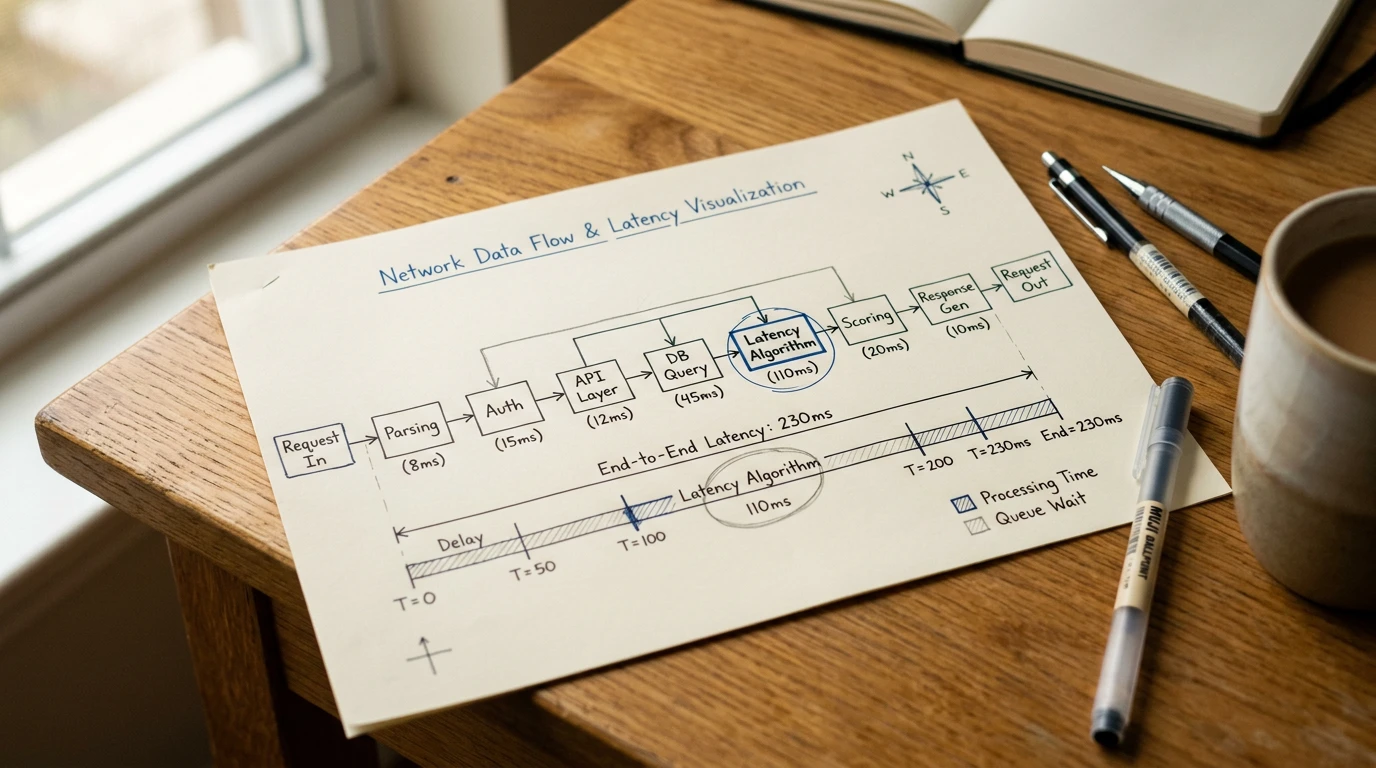 Network Data Flow & Latency Visualization
N
W
E
S
Request
In
Parsing
(8ms)
Auth
(15ms)
API
Layer
(12ms)
DB
Query
(45ms)
Latency
Algorithm
(110ms)
Scoring
(20ms)
Response
Gen
(10ms)
Request
Out
End-to-End Latency: 230ms
Delay
Latency Algorithm
110ms
T=0
T=50
T=100
T=200
T=230ms
End=230ms
Processing Time
Queue Wait
MUJI BALLPOINT